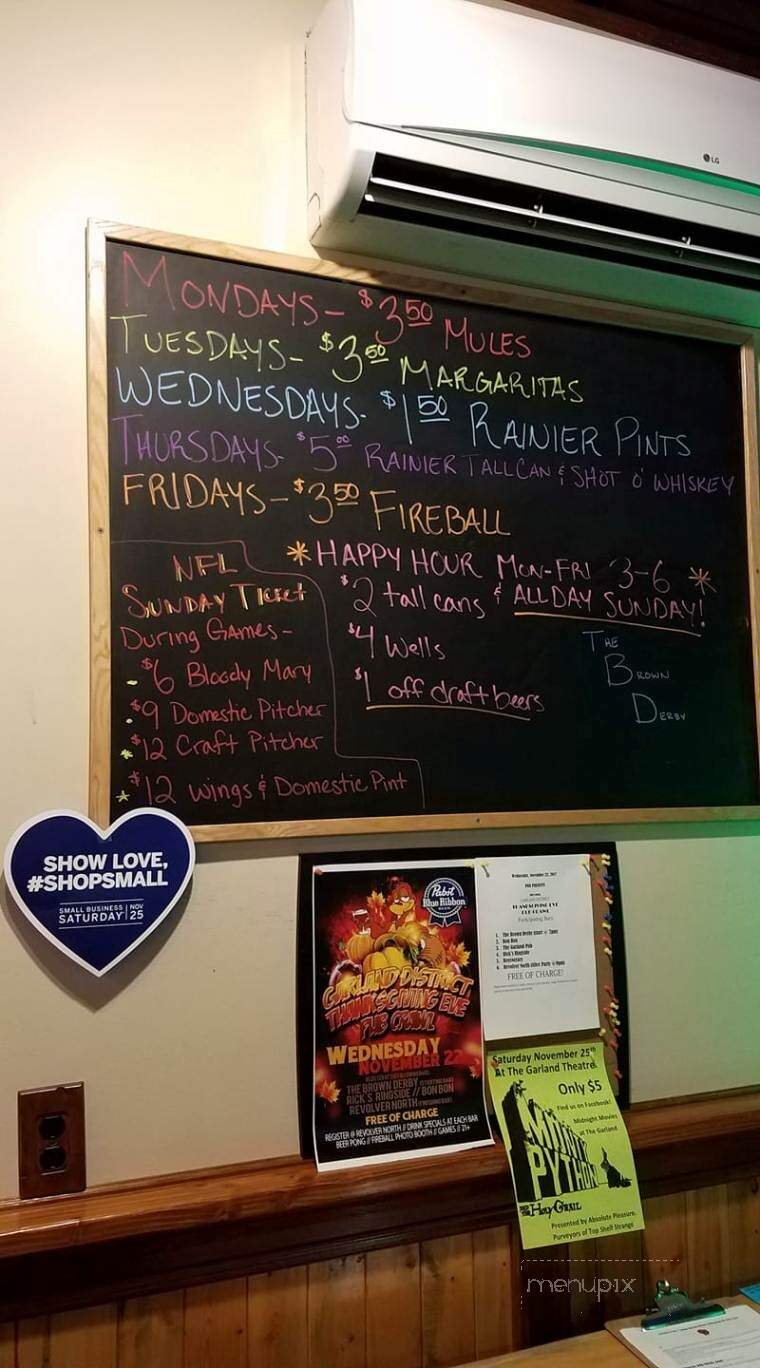 LG
MONDAYS- $3.50 MULES
TUESDAYS- $3.50 MARGARITAS
WEDNESDAYS- $1.50 RAINIER PINTS
THURSDAYS- $5.00 RAINIER TALLCAN & SHOT O' WHISKEY
FRIDAYS- $3.50 FIREBALL
* HAPPY HOUR MON-FRI 3-6 *
$2 tall cans & ALL DAY SUNDAY!
$4 Wells
$1 off draft beers
THE
BROWN
DERBY
NFL
SUNDAY TICKET
During Games-
$6 Bloody Mary
$9 Domestic Pitcher
$12 Craft Pitcher
$12 Wings & Domestic Pint
SHOW LOVE,
#SHOPSMALL
SMALL BUSINESS
SATURDAY
NOV
25
Pabst
Blue Ribbon
GARLAND DISTRICT
THANKSGIVING EVE
PUB CRAWL
WEDNESDAY
NOVEMBER 22
THE BROWN DERBY
RICK'S RINGSIDE // BON BON
REVOLVER NORTH
FREE OF CHARGE
REGISTER @ REVOLVER NORTH // DRINK SPECIALS AT EACH BAR
BEER PONG // FIREBALL PHOTO BOOTH // GAMES // 21+
Wednesday, November 22, 2017
THANKSGIVING EVE
PUB CRAWL
Participating Bars:
1. The Brown Derby
2. Bon Bon
3. The Garland Pub
4. Rick's Ringside
FREE OF CHARGE!
Saturday November 25th
At The Garland Theatre
Only $5
Find us on Facebook!
Midnight Movies
at The Garland
MONTY
PYTHON
AND THE HOLY GRAIL
Presented by Absolute Pleasure,
Purveyors of Top Shelf Strange
menupix